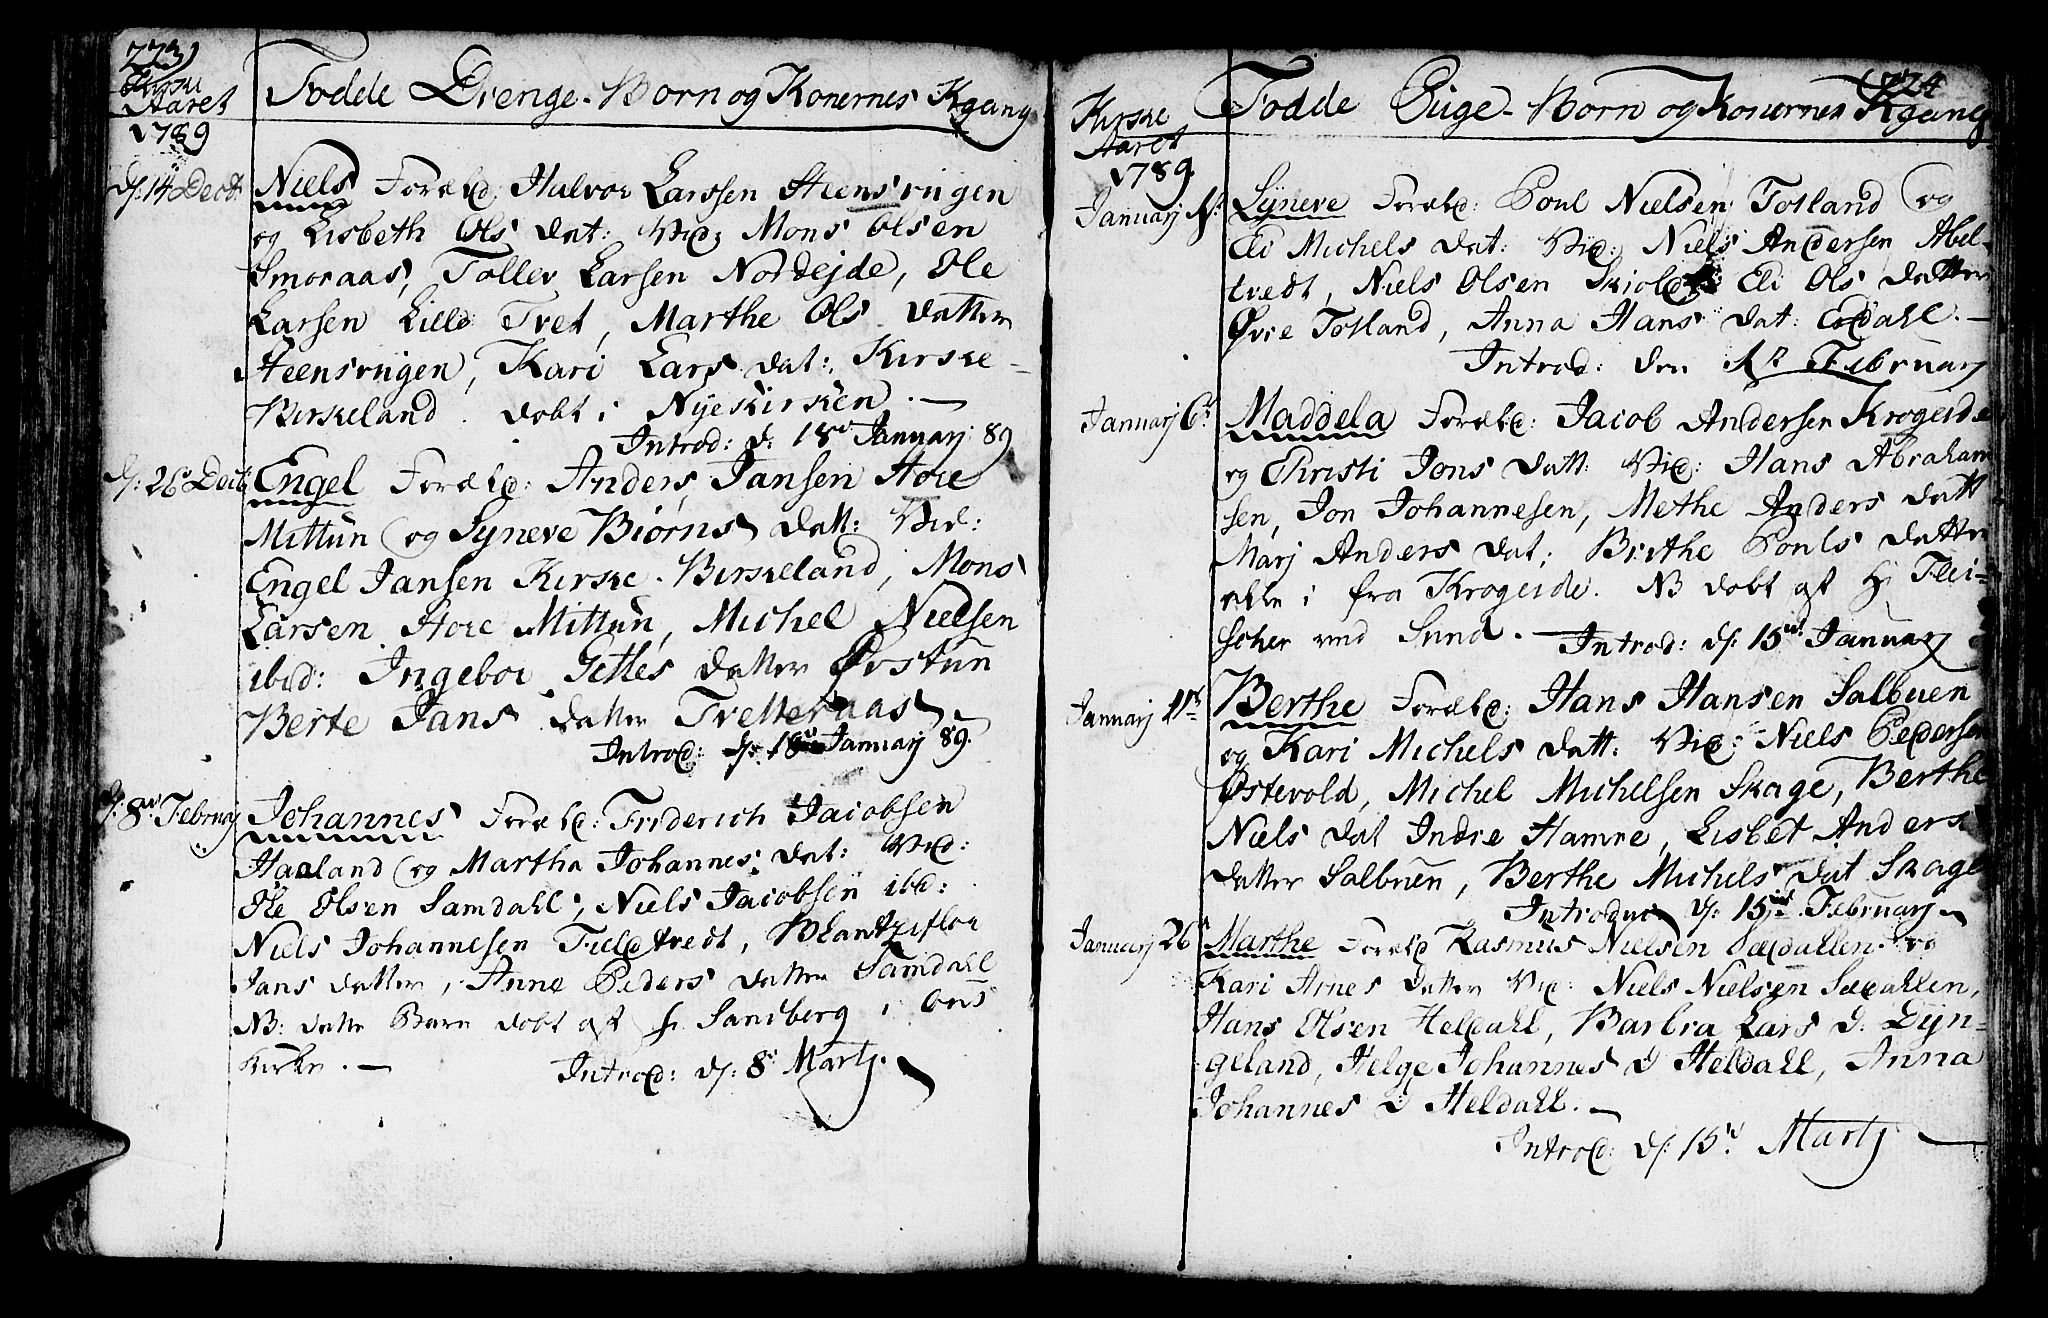 223)
Kirke
Aaret
1789
Fødde Drenge-Børn og Konernes Kgang
d: 14 Decb: Niels Foræld: Halvor Larssen Steensrugen
og Lisbeth Ols dat: Vid: Mons Olsen
Smøraas, Tollev Larsen Nordejde, Ole
Larsen Lille Tvet, Marthe Ols datter
Steensrugen, Kari Lars dat: Kirke-
Birkeland. døbt i Nyekirken. —
Introd: d: 18de Januarj 89
d: 26 Decb: Engel Foræld: Anders Jansen Store
Mittun og Syneve Biørns datt: Vid:
Engel Jansen Kirke-Birkeland, Mons
Larsen Store Mittun, Michel Nielsen
ibid: Ingebor Gitles datter Øvstun
Berte Jans datter Tvetteraas.
Introd: d: 18 Januarj 89.
d: 8de Februarj Johannes Foræld: Friderich Jacobsen
Haaland og Martha Johannes dat: Vid:
Ole Olsen Samdahl, Niels Jacobsen ibd:
Niels Johannesen Fieldtvedt, Blantzeflor
Jans datter, Anne Peders datter Samdahl
NB: dette Barn døbt af hr Sandberg i Ous
Kirke. — Introd: d: 8de Martj.
224
Kirke
Aaret
1789
Fødde Piige-Børn og Konernes Kgang
Januarj 1st: Syneve Foræld: Poul Nielsen Totland og
Eli Michels dat: Vid: Niels Andersen Abel-
tvedt, Niels Olsen Skiold Eli Ols datter
Øvre Totland, Anna Hans dat: Eedahl. —
Introd: den 1st Februarj
Januarj 6t: Maddela Foræld: Jacob Andersen Krogeide
og Christi Jons datt: Vid: Hans Abraham
sen, Jon Johannesen, Methe Anders datt
Marj Anders dat: Birthe Pouls datter
alle i fra Krogeide. NB døbt af Hr Flei-
scher ved Sund. — Introd: d: 15de Januarj
Januarj 21st Berthe Foræld: Hans Hansen Salbuen
og Kari Michels datt: Vid: Niels Pedersen
Østevold, Michel Michelsen Skage, Berthe
Niels dat Indre Hamre, Lisbet Anders
datter Salbuen, Berthe Michels dat Skage
Introduc d: 15de Februarj
Januarj 26 Marthe Foræld Rasmus Nielsen Sædahlen og
Kari Arnes datter Vid: Niels Nielsen Sædahlen,
Hans Olsen Heldahl, Barbra Lars D: Dyn-
geland, Helge Johannes D Heldahl, Anna
Johannes D Heldahl. —
Introd: d: 15de Martj —